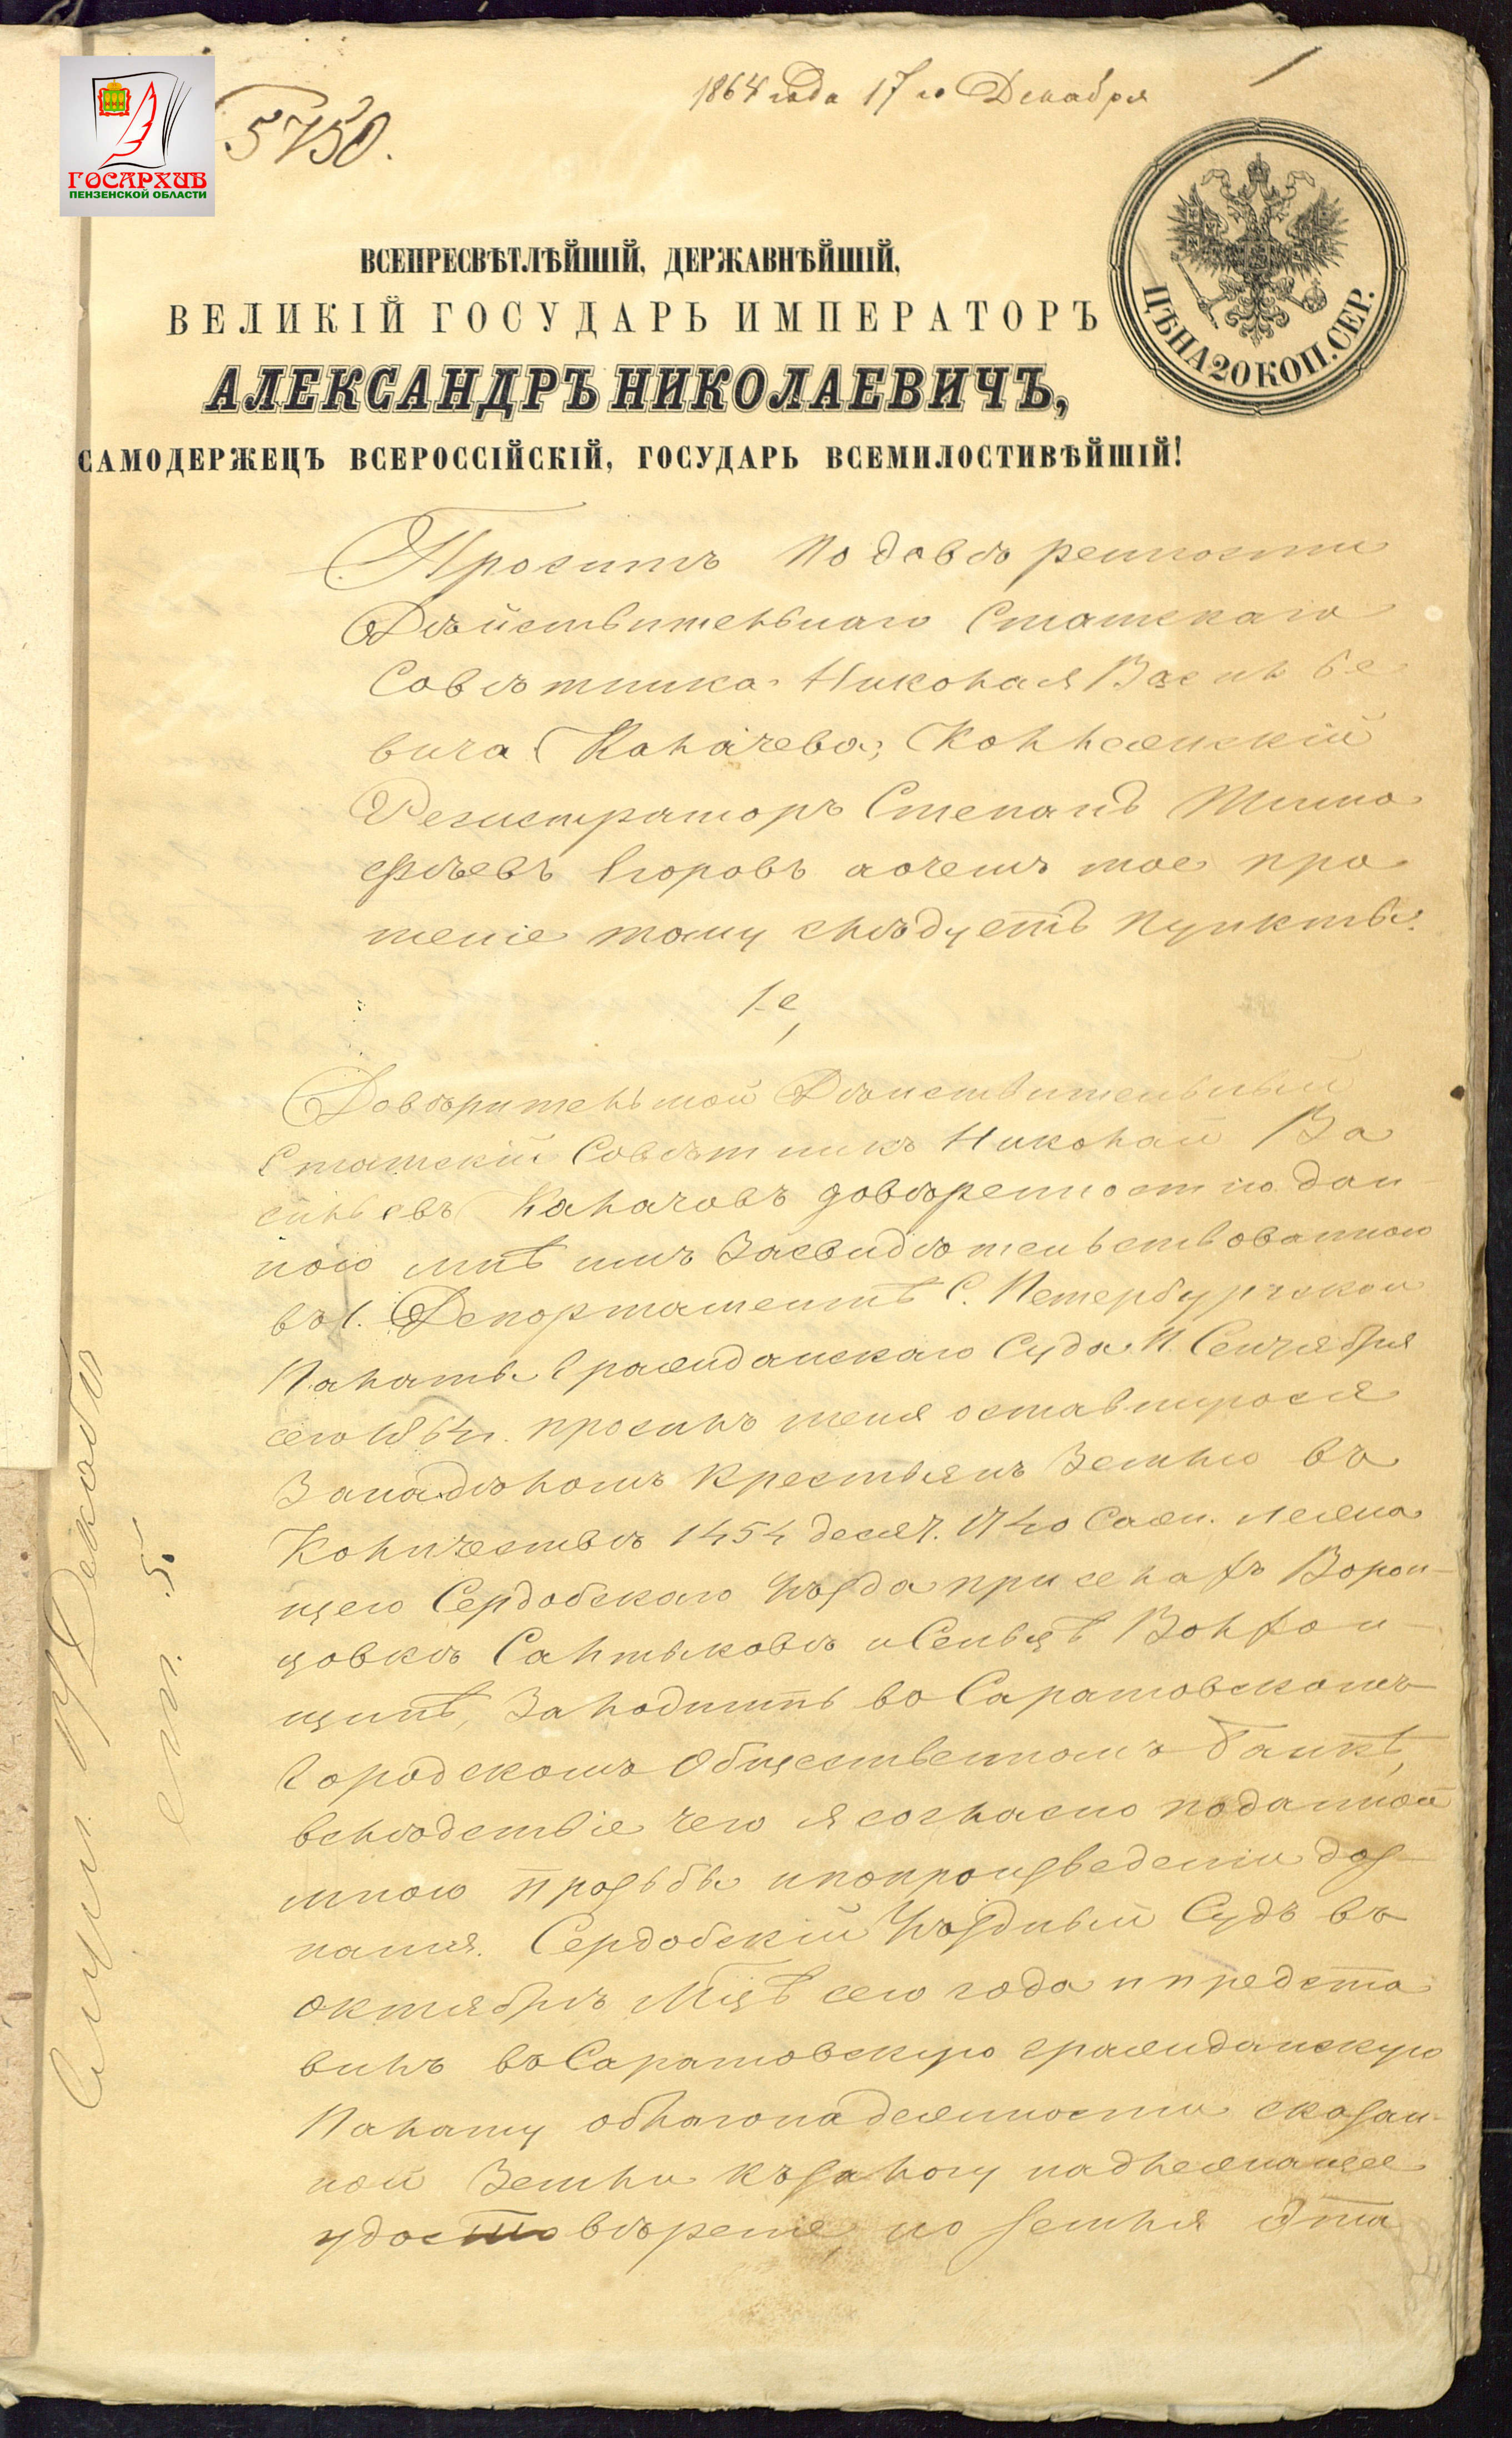 1864 года 17го Декабря
1
5750.
ГОСАРХИВ
ПЕНЗЕНСКОЙ ОБЛАСТИ
ЦѢНА 20 КОП. СЕР.
ВСЕПРЕСВѢТЛѢЙШІЙ, ДЕРЖАВНѢЙШІЙ,
ВЕЛИКІЙ ГОСУДАРЬ ИМПЕРАТОРЪ
АЛЕКСАНДРЪ НИКОЛАЕВИЧЪ,
САМОДЕРЖЕЦЪ ВСЕРОССІЙСКІЙ, ГОСУДАРЬ ВСЕМИЛОСТИВѢЙШІЙ!
Проситъ по довѣренности
Дѣйствительнаго Статскаго
Совѣтника Николая Василье
вича Калачева, Коллежскій
Регистраторъ Степанъ Тимо
фѣевъ Егоровъ а очемъ мое про
шеніе тому слѣдуетъ пункты.
1е,
Довѣритель мой Дѣйствительный
Статскій Совѣтникъ Николай Ва
сильевъ Калачовъ довѣренностію дан-
ною мнѣ имъ Засвидѣтельствованною
въ 1. Департаментѣ С. Петербургской
Палаты Гражданскаго Суда 11. Сентября
сего 1864 г. просилъ меня оставшуюся
За надѣломъ крестьянъ Землю въ
Количествѣ 1454 десят. 1740 Саж. лежа
щею Сердобскаго Уѣзда при селахъ Ворон-
цовкѣ Салтыковѣ и Сельцѣ Волхон-
щинѣ, Заложить во Саратовскомъ
Городскомъ Общественномъ Банкѣ,
вслѣдствіе чего я согласно поданной
мною прозьбы и по произведеніи доз-
нанія. Сердобскій Уѣздный Судъ въ
октябрѣ Мцѣ сего года и предста
вилъ въ Саратовскую гражданскую
Палату о благонадежности сказан-
ной Земли къ залогу надлежащее
удостовѣреніе, но земля эта
Слуш. 17 Декабря
ст. 5.